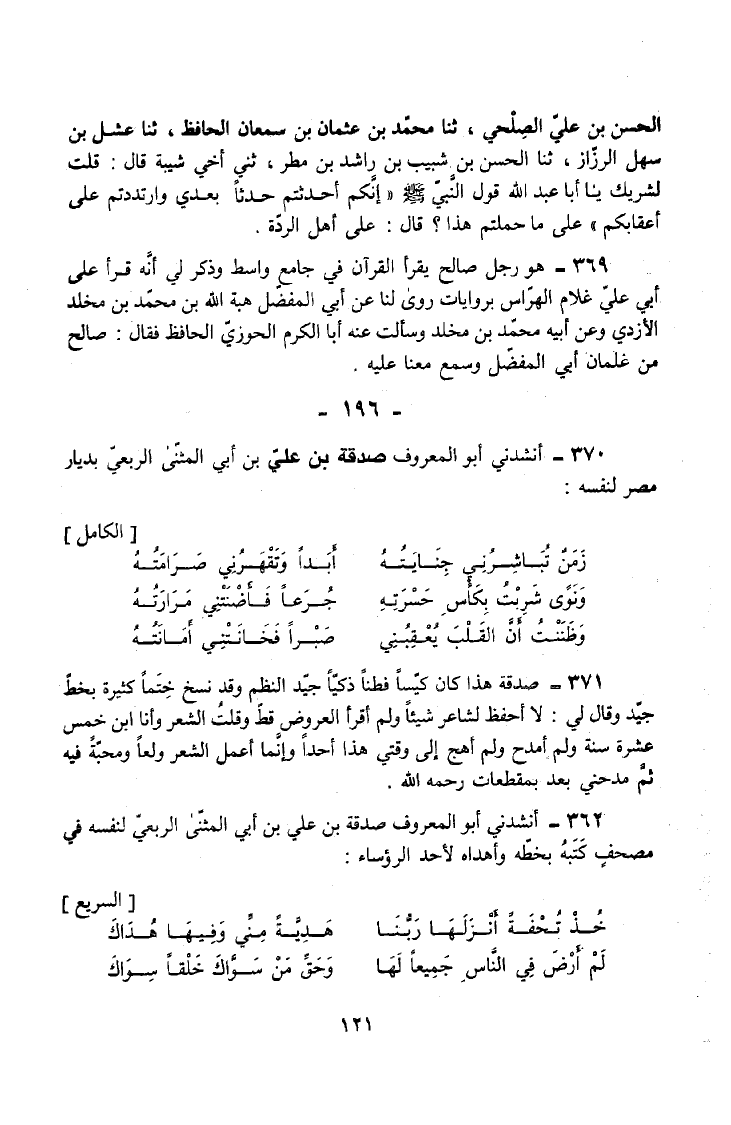 الحسن بن عليّ الصِلْحي ، ثنا محمّد بن عثمان بن سمعان الحافظ ، ثنا عشل بن
سهل الرزّاز ، ثنا الحسن بن شبيب بن راشد بن مطر ، ثني أخي شيبة قال : قلت
لشريك يا أبا عبد الله قول النَّبيّ ﷺ « إنَّكم أحدثتم حدثاً بعدي وارتددتم على
أعقابكم » على ما حملتم هذا ؟ قال : على أهل الردّة .
٣٦٩ ـ هو رجل صالح يقرأ القرآن في جامع واسط وذكر لي أنَّه قرأ على
أبي عليّ غلام الهرّاس بروايات روىٰ لنا عن أبي المفضّل هبة الله بن محمّد بن مخلد
الأزدي وعن أبيه محمّد بن مخلد وسألت عنه أبا الكرم الحوزيّ الحافظ فقال : صالح
من غلمان أبي المفضّل وسمع معنا عليه .
ـ ١٩٦ ـ
٣٧٠ ـ أنشدني أبو المعروف صدقة بن عليّ بن أبي المثنّىٰ الربعيّ بديار
مصر لنفسه :
[ الكامل ]
زَمَنٌ تُبَاشِرُنِي جِنَايَتُهُ أَبَداً وَتَقْهَرُنِي صَرَامَتُهُ
وَنَوًى شَرِبْتُ بِكَأْسِ حَسْرَتِهِ جُرَعاً فَأَضْنَتْنِي مَرَارَتُهُ
وَظَنَنْتُ أَنَّ القَلْبَ يُعْقِبُنِي صَبْراً فَخَانَتْنِي أَمَانَتُهُ
٣٧١ ـ صدقة هذا كان كيّساً فطناً ذكيّاً جيّد النظم وقد نسخ خِتَماً كثيرة بخطّ
جيّد وقال لي : لا أحفظ لشاعر شيئاً ولم أقرأ العروض قطّ وقلتُ الشعر وأنا ابن خمس
عشرة سنة ولم أمدح ولم أهج إلى وقتي هذا أحداً وإنَّما أعمل الشعر ولعاً ومحبّةً فيه
ثمَّ مدحني بعد بمقطعات رحمه الله .
٣٦٢ ـ أنشدني أبو المعروف صدقة بن علي بن أبي المثنّىٰ الربعيّ لنفسه في
مصحفٍ كَتَبَهُ بخطّه وأهداه لأحد الرؤساء :
[ السريع ]
خُذْ تُحْفَةً أَنْزَلَهَا رَبُّنَا هَدِيَّةً مِنِّي وَفِيهَا هُدَاكَ
لَمْ أَرْضَ فِي النَّاسِ جَمِيعاً لَهَا وَحَقِّ مَنْ سَوَّاكَ خَلْقاً سِوَاكَ
١٢١